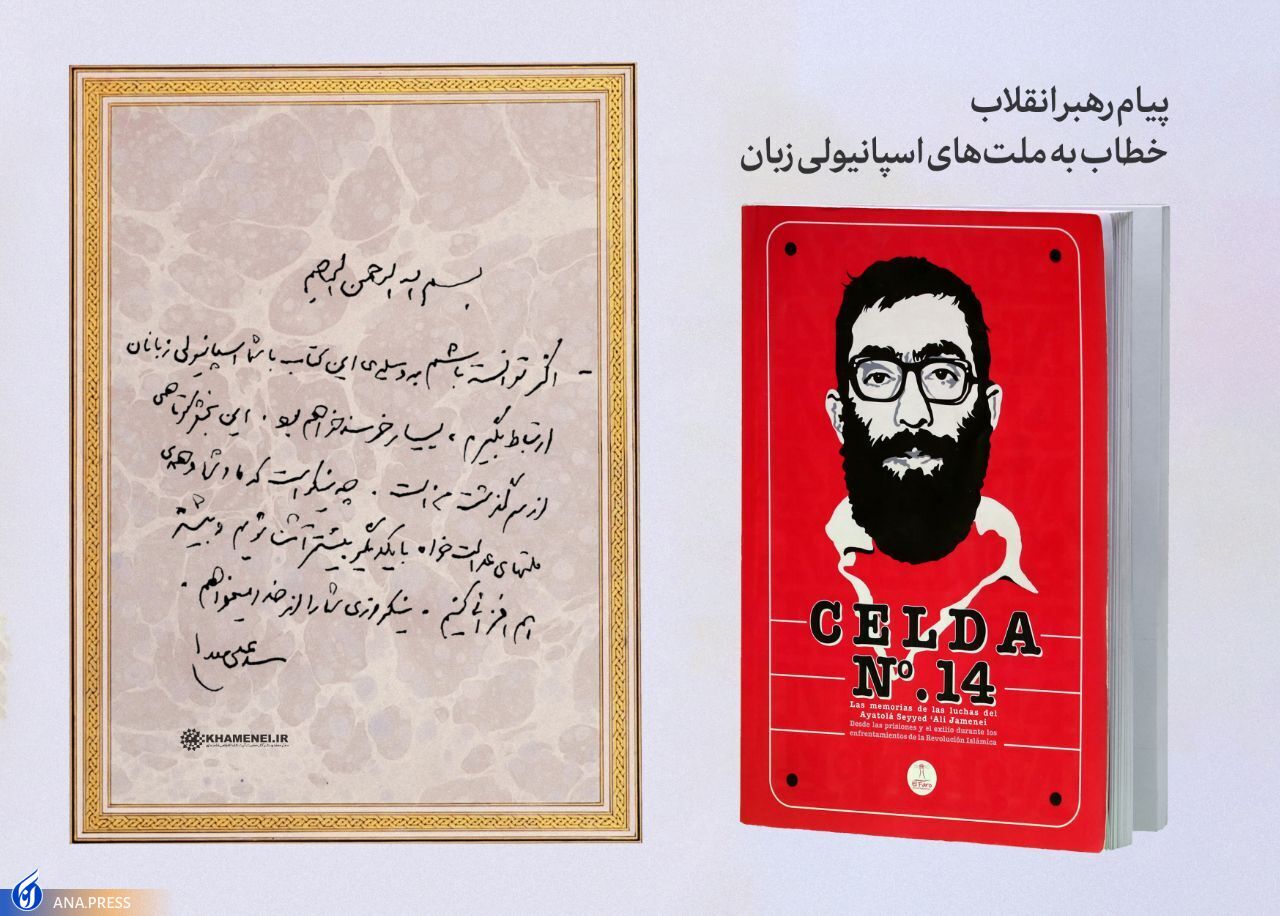 پیام رهبر انقلاب
خطاب به ملت‌های اسپانیولی زبان
بسم الله الرحمن الرحیم
- اگر توانسته باشم به وسیله‌ی این کتاب با شما اسپانیولی زبانان
ارتباط بگیرم، بسیار خرسند خواهم بود. این بخش کوتاهی
از سرگذشت من است. چه نیکو است که ما و شما و همه‌ی
ملتهای عدالت خواه با یکدیگر بیشتر آشنا شویم و بیشتر
هم افزائی کنیم. نیکروزی شما را از خدا میخواهم.
سید علی خامنه‌ای
KHAMENEI.IR
CELDA
Nº.14
Las memorias de las luchas del
Ayatolá Seyyed ‘Ali Jamenei
Desde las prisiones y el exilio durante los
enfrentamientos de la Revolución Islámica
El Faro
ANA.PRESS